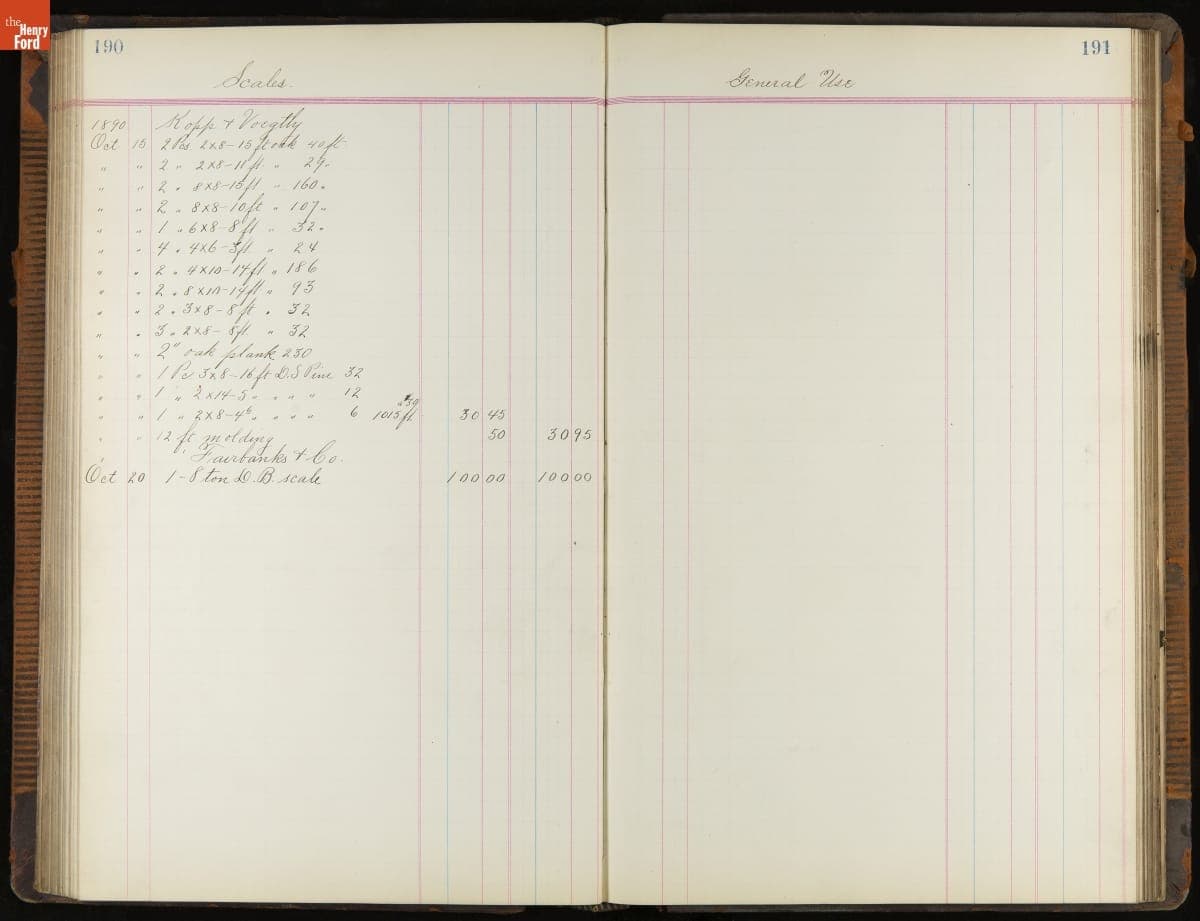 the Henry Ford
190
Scales.
1890 Kopp & Voegtly
Oct 15 2 Pcs. 2x8-15 ft oak 40 ft.
" " 2 " 2x8-11 ft. " 29 "
" " 2 " 8x8-15 ft " 160 "
" " 2 " 8x8-10 ft " 107 "
" " 1 " 6x8-8 ft " 32 "
" " 4 " 4x6-3 ft " 24
" " 2 " 4x10-14 ft " 186
" " 2 " 8x10-14 ft " 93
" " 2 " 3x8-8 ft " 32
" " 3 " 2x8-8 ft. " 32
" " 2" oak plank 230
" " 1 Pc 3x8-16 ft D.S Pine 32
" " 1 " 2x14-5 " " " " 12
" " 1 " 2x8-4⁶ " " " " 6 1015 ft. 30 45
" " 12 ft molding 50 30 95
Fairbanks & Co.
Oct 20 1-8 ton D.B. scale 100 00 100 00
191
General Use